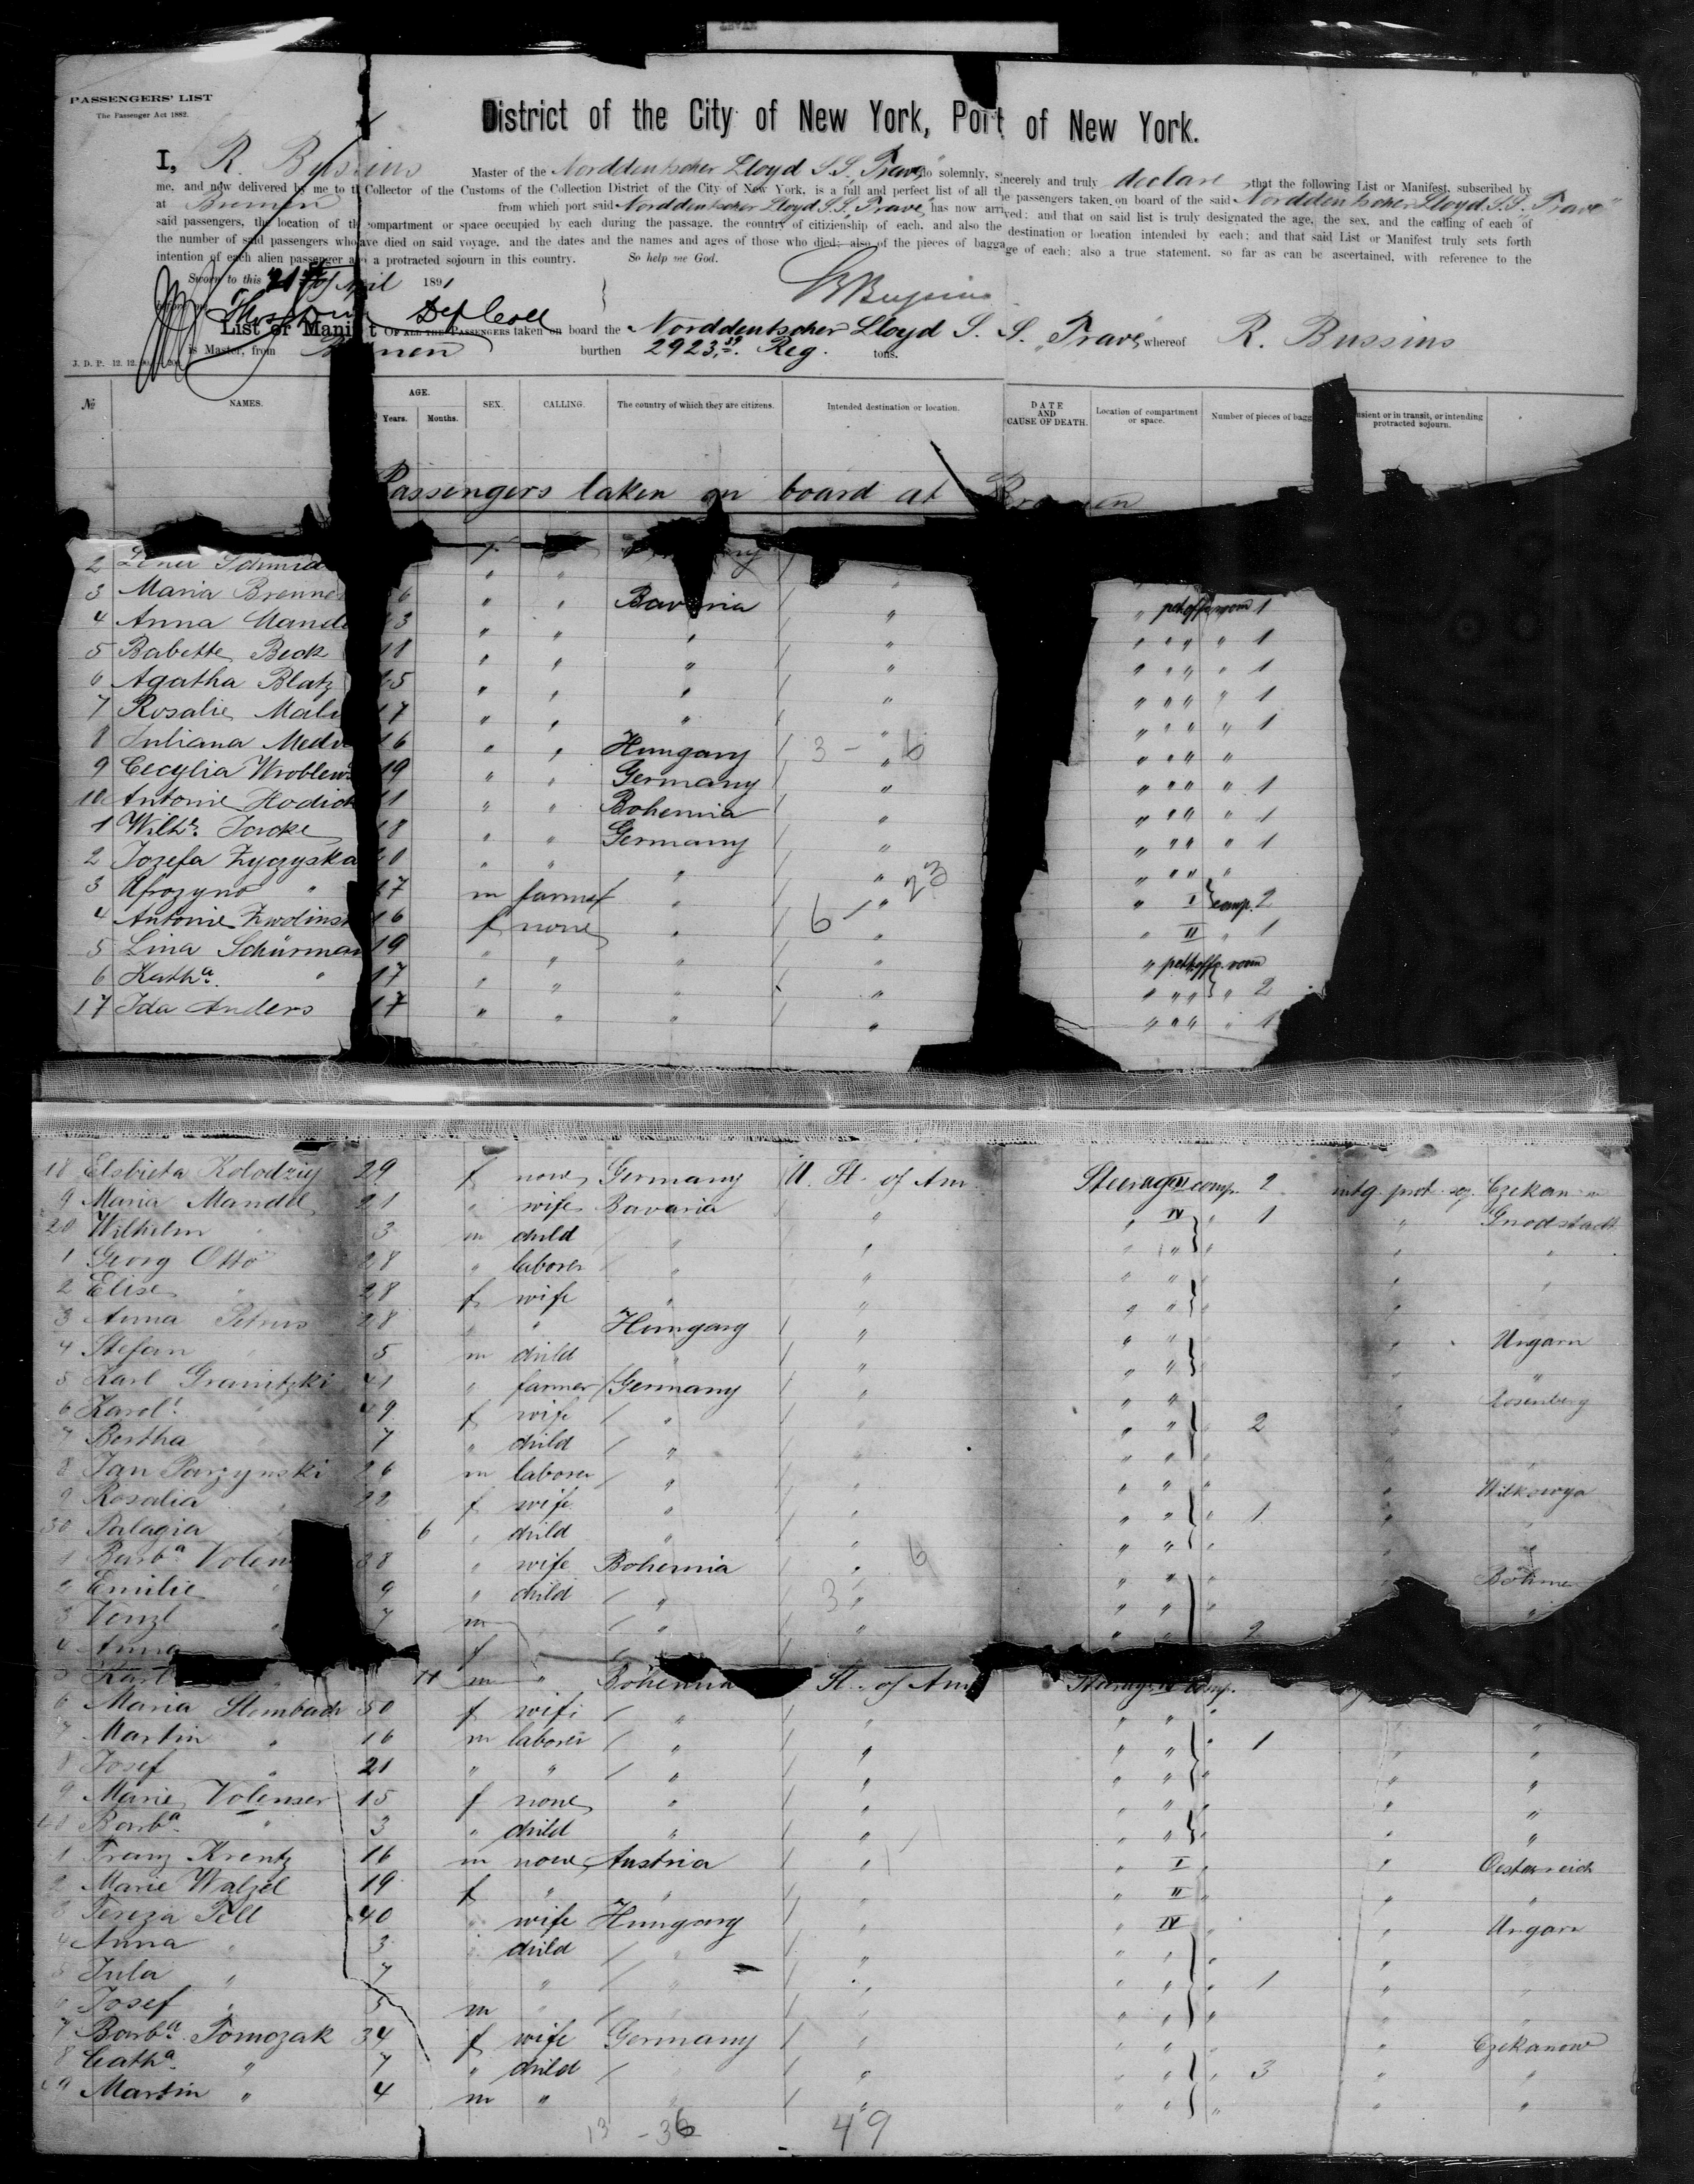 PASSENGERS' LIST
The Passenger Act 1882.
District of the City of New York, Port of New York.
I, R. Bussius Master of the Norddeutscher Lloyd S.S. "Trave" do solemnly, sincerely and truly declare that the following List or Manifest, subscribed by
me, and now delivered by me to the Collector of the Customs of the Collection District of the City of New York, is a full and perfect list of all the passengers taken on board of the said Norddeutscher Lloyd S.S. "Trave"
at Bremen from which port said Norddeutscher Lloyd S.S. "Trave" has now arrived; and that on said list is truly designated the age, the sex, and the calling of each of
said passengers, the location of the compartment or space occupied by each during the passage, the country of citizienship of each, and also the destination or location intended by each; and that said List or Manifest truly sets forth
the number of said passengers who have died on said voyage, and the dates and the names and ages of those who died; also of the pieces of baggage of each; also a true statement, so far as can be ascertained, with reference to the
intention of each alien passenger a protracted sojourn in this country. So help me God.
Sworn to this 21st April 1891
R Bussius
Dep Coll
List or Manifest OF ALL THE PASSENGERS taken on board the Norddeutscher Lloyd S. S. "Trave" whereof R. Bussius
is Master, from Bremen burthen 2923, Reg. tons.
J. D. P. 12. 12.
№ NAMES. AGE. Years. Months. SEX. CALLING. The country of which they are citizens. Intended destination or location. DATE AND CAUSE OF DEATH. Location of compartment or space. Number of pieces of bagg sient or in transit, or intending protracted sojourn.
Passengers taken on board at Bremen
2 Lena Schmid
3 Maria Brenne 6 " " Bavaria " " pet.offz. room 1
4 Anna Mand 3 " " " " " " " " 1
5 Babette Beck 18 " " " " " " " " 1
6 Agatha Blatz 25 " " " " " " " " 1
7 Rosalie Mal 17 " " " " " " " " 1
8 Juliana Medv 16 " " Hungary 3 - 6 " " " " "
9 Cecylia Wroblews 19 " " Germany " " " " " 1
10 Antonie Hodick 11 " " Bohemia " " " " " 1
1 Wilh. Jacke 18 " " Germany " " " " " 1
2 Jozefa Zyczyska 20 " " " " 23 " " " "
3 17 m farmer " " " I comp. 2
4 Antonie Zwolinsk 16 f none " 6 " " II " 1
5 Lina Schürman 19 " " " " " pet.offz. room
6 Kath.a " 17 " " " " " " " " 2
17 Ida Anders 17 " " " " " " " " 1
18 Elsbieta Kolodziej 29 f none Germany U. St. of Am. Steerage IV comp. 2 intg. prot. soj. Czekanow
9 Maria Mandel 21 " wife Bavaria " " IV " 1 " Gnodstadt
20 Wilhelm " 3 m child " " " " " " "
1 Georg Otto 28 " laborer " " " " " " "
2 Elise " 28 f wife " " " " " "
3 Anna Petrus 28 " " Hungary " " " " Ungarn
4 Stefan " 5 m child " " " " " "
5 Karl Granitzki 41 " farmer Germany " " " " Rosenberg
6 Karol. " 49 f wife " " " " " 2
7 Bertha " 7 " child " " " " "
8 Jan Parzynski 26 m laborer " " " " " " Wilkowya
9 Rosalia " 22 f wife " " " " " 1 " "
30 Palagia " 6 " child " " " " " " "
1 Barb.a Volen 38 " wife Bohemia " 6 " " " " Böhme
2 Emilie " 9 " child " 3 " " " " "
3 Venzl " 7 m " " " " 2
4 Anna f
5 Karl 11 m " Bohemia St. of Am Steerage IV comp.
6 Maria Stembach 50 f wife " " " " " "
7 Martin " 16 m laborer " " " " " 1 " "
8 Josef " 21 " " " " " " " " "
9 Marie Volenser 15 f none " " " " " " "
40 Barb.a " 3 " child " " " " " " "
1 Franz Krentz 16 m none Austria " " I " " Oesterreich
2 Marie Walzel 19 f " " " " II " " "
3 Tereza Pell 40 " wife Hungary " " IV " " Ungarn
4 Anna " 3 " child " " " " " " "
5 Jula " 7 " " " " " " 1 " "
6 Josef " 5 m " " " " " " " "
7 Barb.a Tomczak 34 f wife Germany " " " " " Czekanow
8 Cath.a " 7 " child " " " " " 3 " "
49 Martin " 4 m " " " " " " " "
13 - 36 49